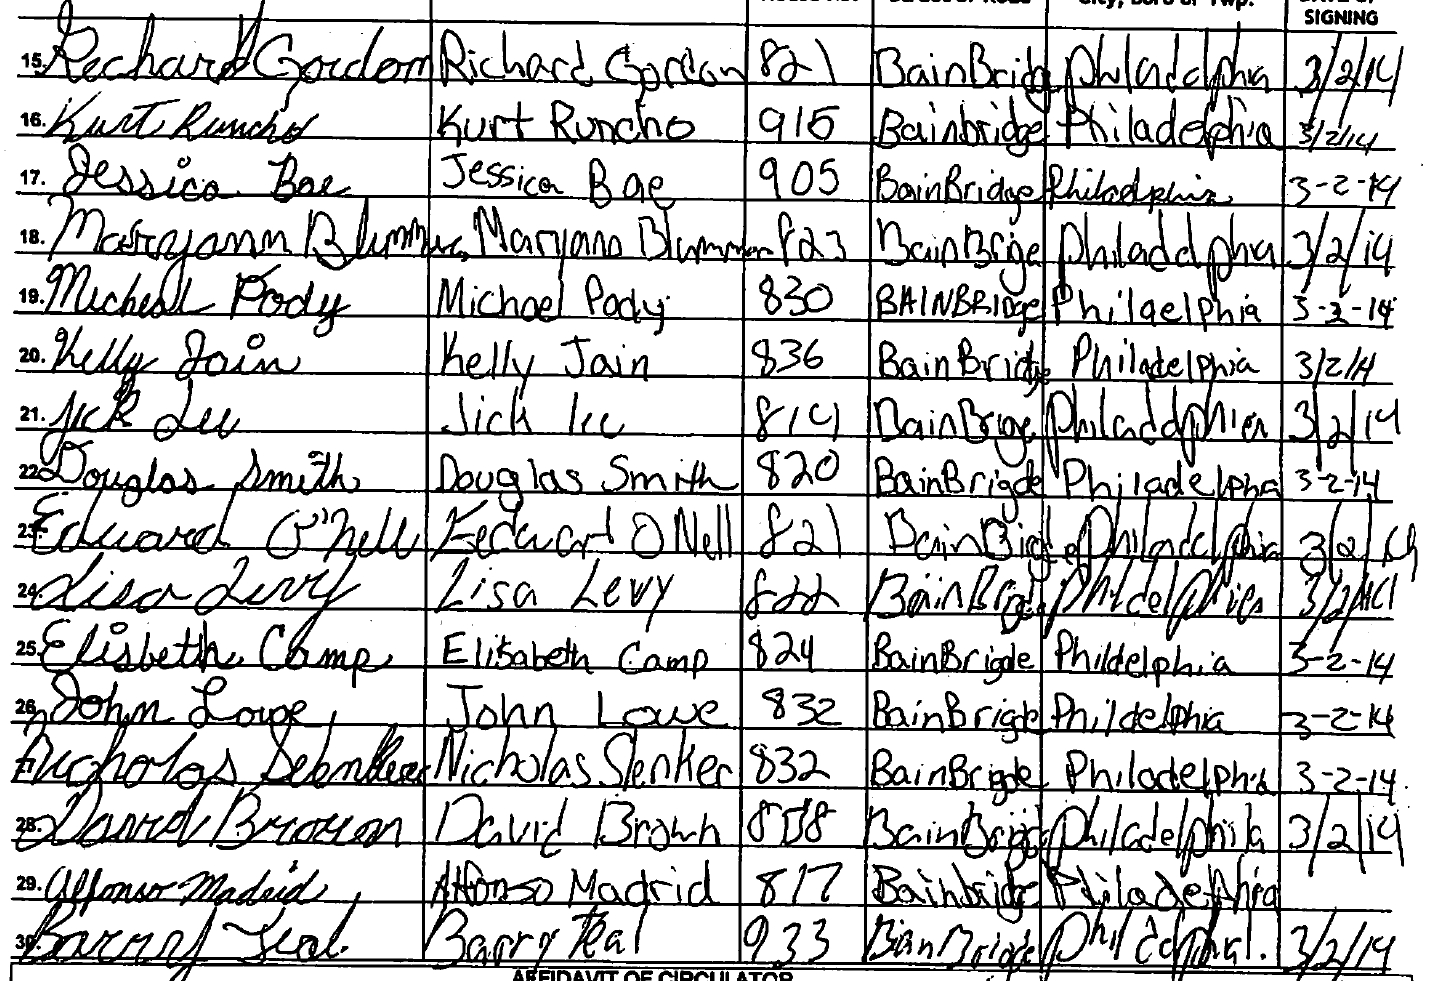 City, Boro or Twp.
SIGNING
15. Richard Gordon Richard Gordon 821 BainBridg Philadelphia 3/2/14
16. Kurt Runcho Kurt Runcho 915 Bainbridge Philadelphia 3/2/14
17. Jessica Bae Jessica Bae 905 BainBridge Philadlphia 3-2-14
18. Maryann Blumm Maryann Blumm 823 BainBrige Philadelphia 3/2/14
19. Micheal Pody Michael Pody 830 BAINBRIDge Philaelphia 3-2-14
20. Kelly Jain Kelly Jain 836 BainBridge Philadelphia 3/2/14
21. Jick Lee Jick lee 814 BainBrige 3/2/14
22. Douglas Smith Douglas Smith 820 BainBrigde Philadelphia 3-2-14
23. Eduward O'Nell O Nell 821 Philadelphia 3/2/14
24. Lisa Levy Lisa Levy 822 3/2/14
25. Elisbeth Camp Elisabeth Camp 824 BainBrigde Phildelphia 3-2-14
26. John Lowe John Lowe 832 BainBrigde Phildelphia 3-2-14
Nicholas Nicholas Slenker 832 BainBrigde Philadelphia 3-2-14
28. David Brown David Brown 808 Philadelphila 3/2/14
29. Alfonso Madrid Alfonso Madrid 817 Bainbridge Philadelphia
30. Barry Teal Barry Teal 933 BianBrigde 3/2/14
AFFIDAVIT OF CIRCULATOR